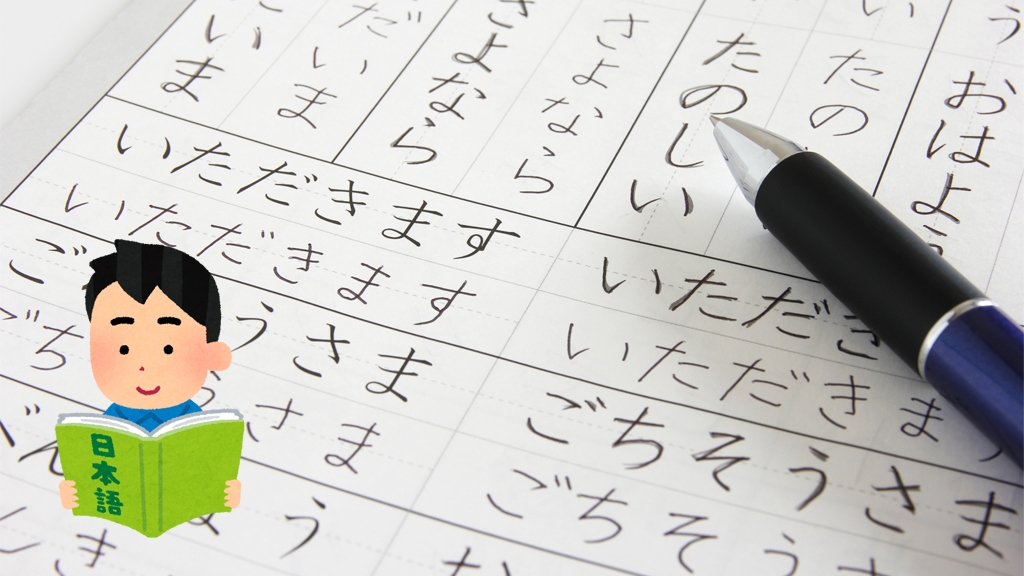 おはよ
たの
たのしい
さよなら
さよなら
だいま
いま
いただきます
いただきます
ご
うさま
ち
さま
う
き
いただき
いただきま
ごちそうさま
ごちそうさ
日本語